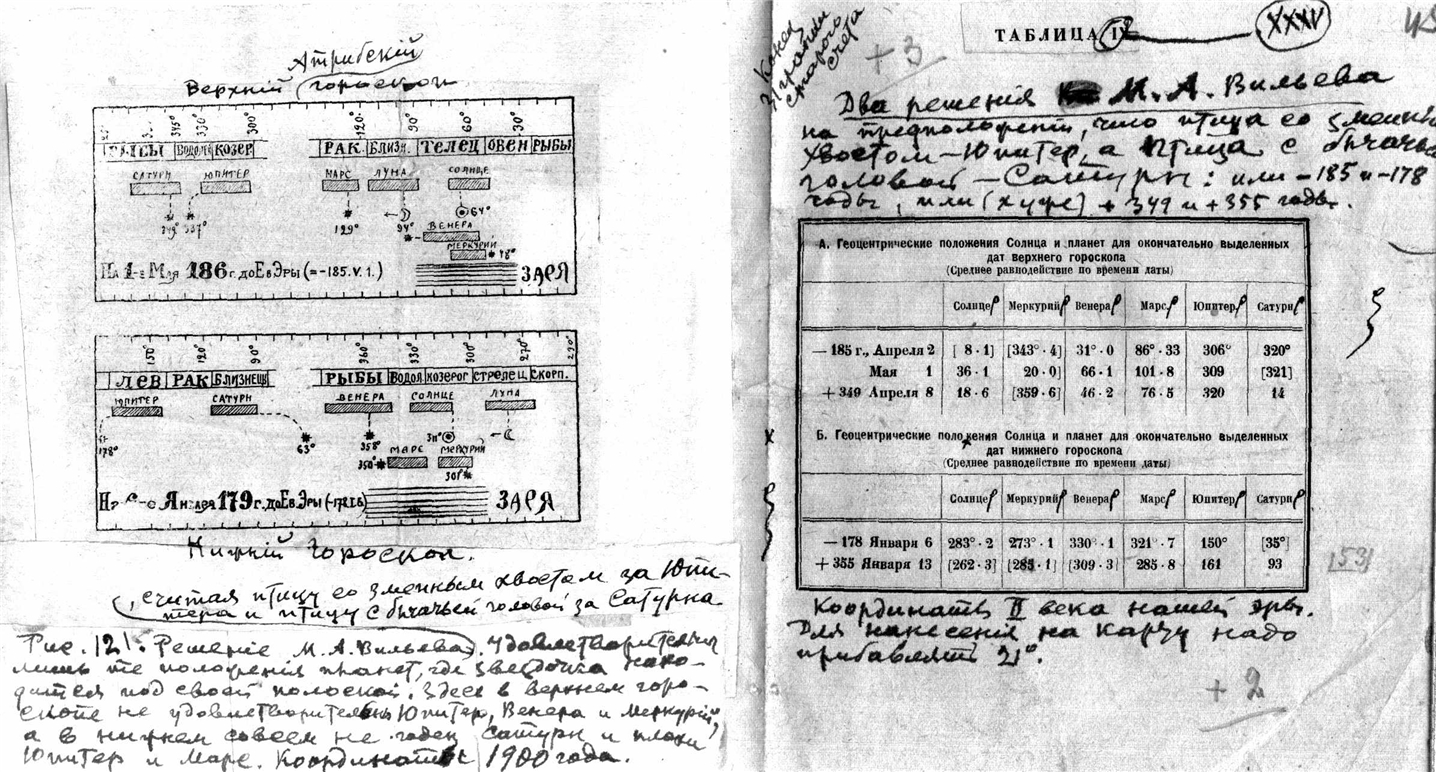 Атрибский
Верхній гороскоп
345° 330° 300° 120° 90° 60° 30°
РЫБЫ ВОДОЛ КОЗЕР РАК БЛИЗН. ТЕЛЕЦ ОВЕН РЫБЫ
САТУРН ЮПИТЕР МАРС ЛУНА СОЛНЦЕ
64°
349° 337° 129° 94° ВЕНЕРА
МЕРКУРИЙ
48°
На 1-е Мая 186 г. до Ев Эры (= -185. V. 1.) ЗАРЯ
150° 120° 90° 360° 330° 300° 270°
ЛЕВ РАК БЛИЗНЕЦЫ РЫБЫ ВОДОЛ КОЗЕРОГ СТРЕЛЕЦ СКОРП.
ЮПИТЕР САТУРН ВЕНЕРА СОЛНЦЕ ЛУНА
178° 63° 358° 311°
МАРС МЕРКУРИЙ
350° 301°
Января 179 г. до Ев. Эры ЗАРЯ
Нижній Гороскоп.
(, считая птицу со змеиным хвостом за Юпи-
тера и птицу с бычачьей головой за Сатурна
Рис. 121. Решеніе М. А. Вильева). Удовлетворительны
лишь те положения планет, где звездочка нахо-
дится под своей полоской. Здесь в верхнем горо-
скопе не удовлетворительны Юпитер, Венера и Меркурий,
а в нижнем совсем не годен Сатурн и плохи
Юпитер и Марс. Координаты 1900 года.
Конец
гранки
старого
счета
+3
ТАБЛИЦА
XXXV
Два решенія М. А. Вильева
на предположеніи, что птица со змеиным
хвостом — Юпитер, а птица с бычачьей
головой — Сатурн: или -185 и -178
годы, или (хуже) + 349 и + 355 годы.
А. Геоцентрические положения Солнца и планет для окончательно выделенных
дат верхнего гороскопа
(Среднее равнодействие по времени даты)
Солнце Меркурий Венера Марс Юпитер Сатурн
— 185 г., Апреля 2 [ 8 · 1] [343° · 4] 31° · 0 86° · 33 306° 320°
Мая 1 36 · 1 20 · 0] 66 · 1 101 · 8 309 [321]
+ 349 Апреля 8 18 · 6 [359 · 6] 46 · 2 76 · 5 320 14
Б. Геоцентрические положения Солнца и планет для окончательно выделенных
дат нижнего гороскопа
(Среднее равнодействие по времени даты)
Солнце Меркурий Венера Марс Юпитер Сатурн
— 178 Января 6 283° · 2 273° · 1 330° · 1 321° · 7 150° [35°]
+ 355 Января 13 [262 · 3] [285 · 1] [309 · 3] 285 · 8 161 93
[53]
Координаты II века нашей эры.
Для нанесенія на карту надо
прибавлять 21°.
+ 2